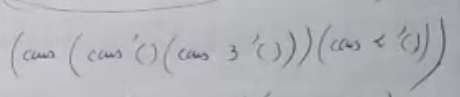 (cons (cons '() (cons 3 '())) (cons 2 '()))